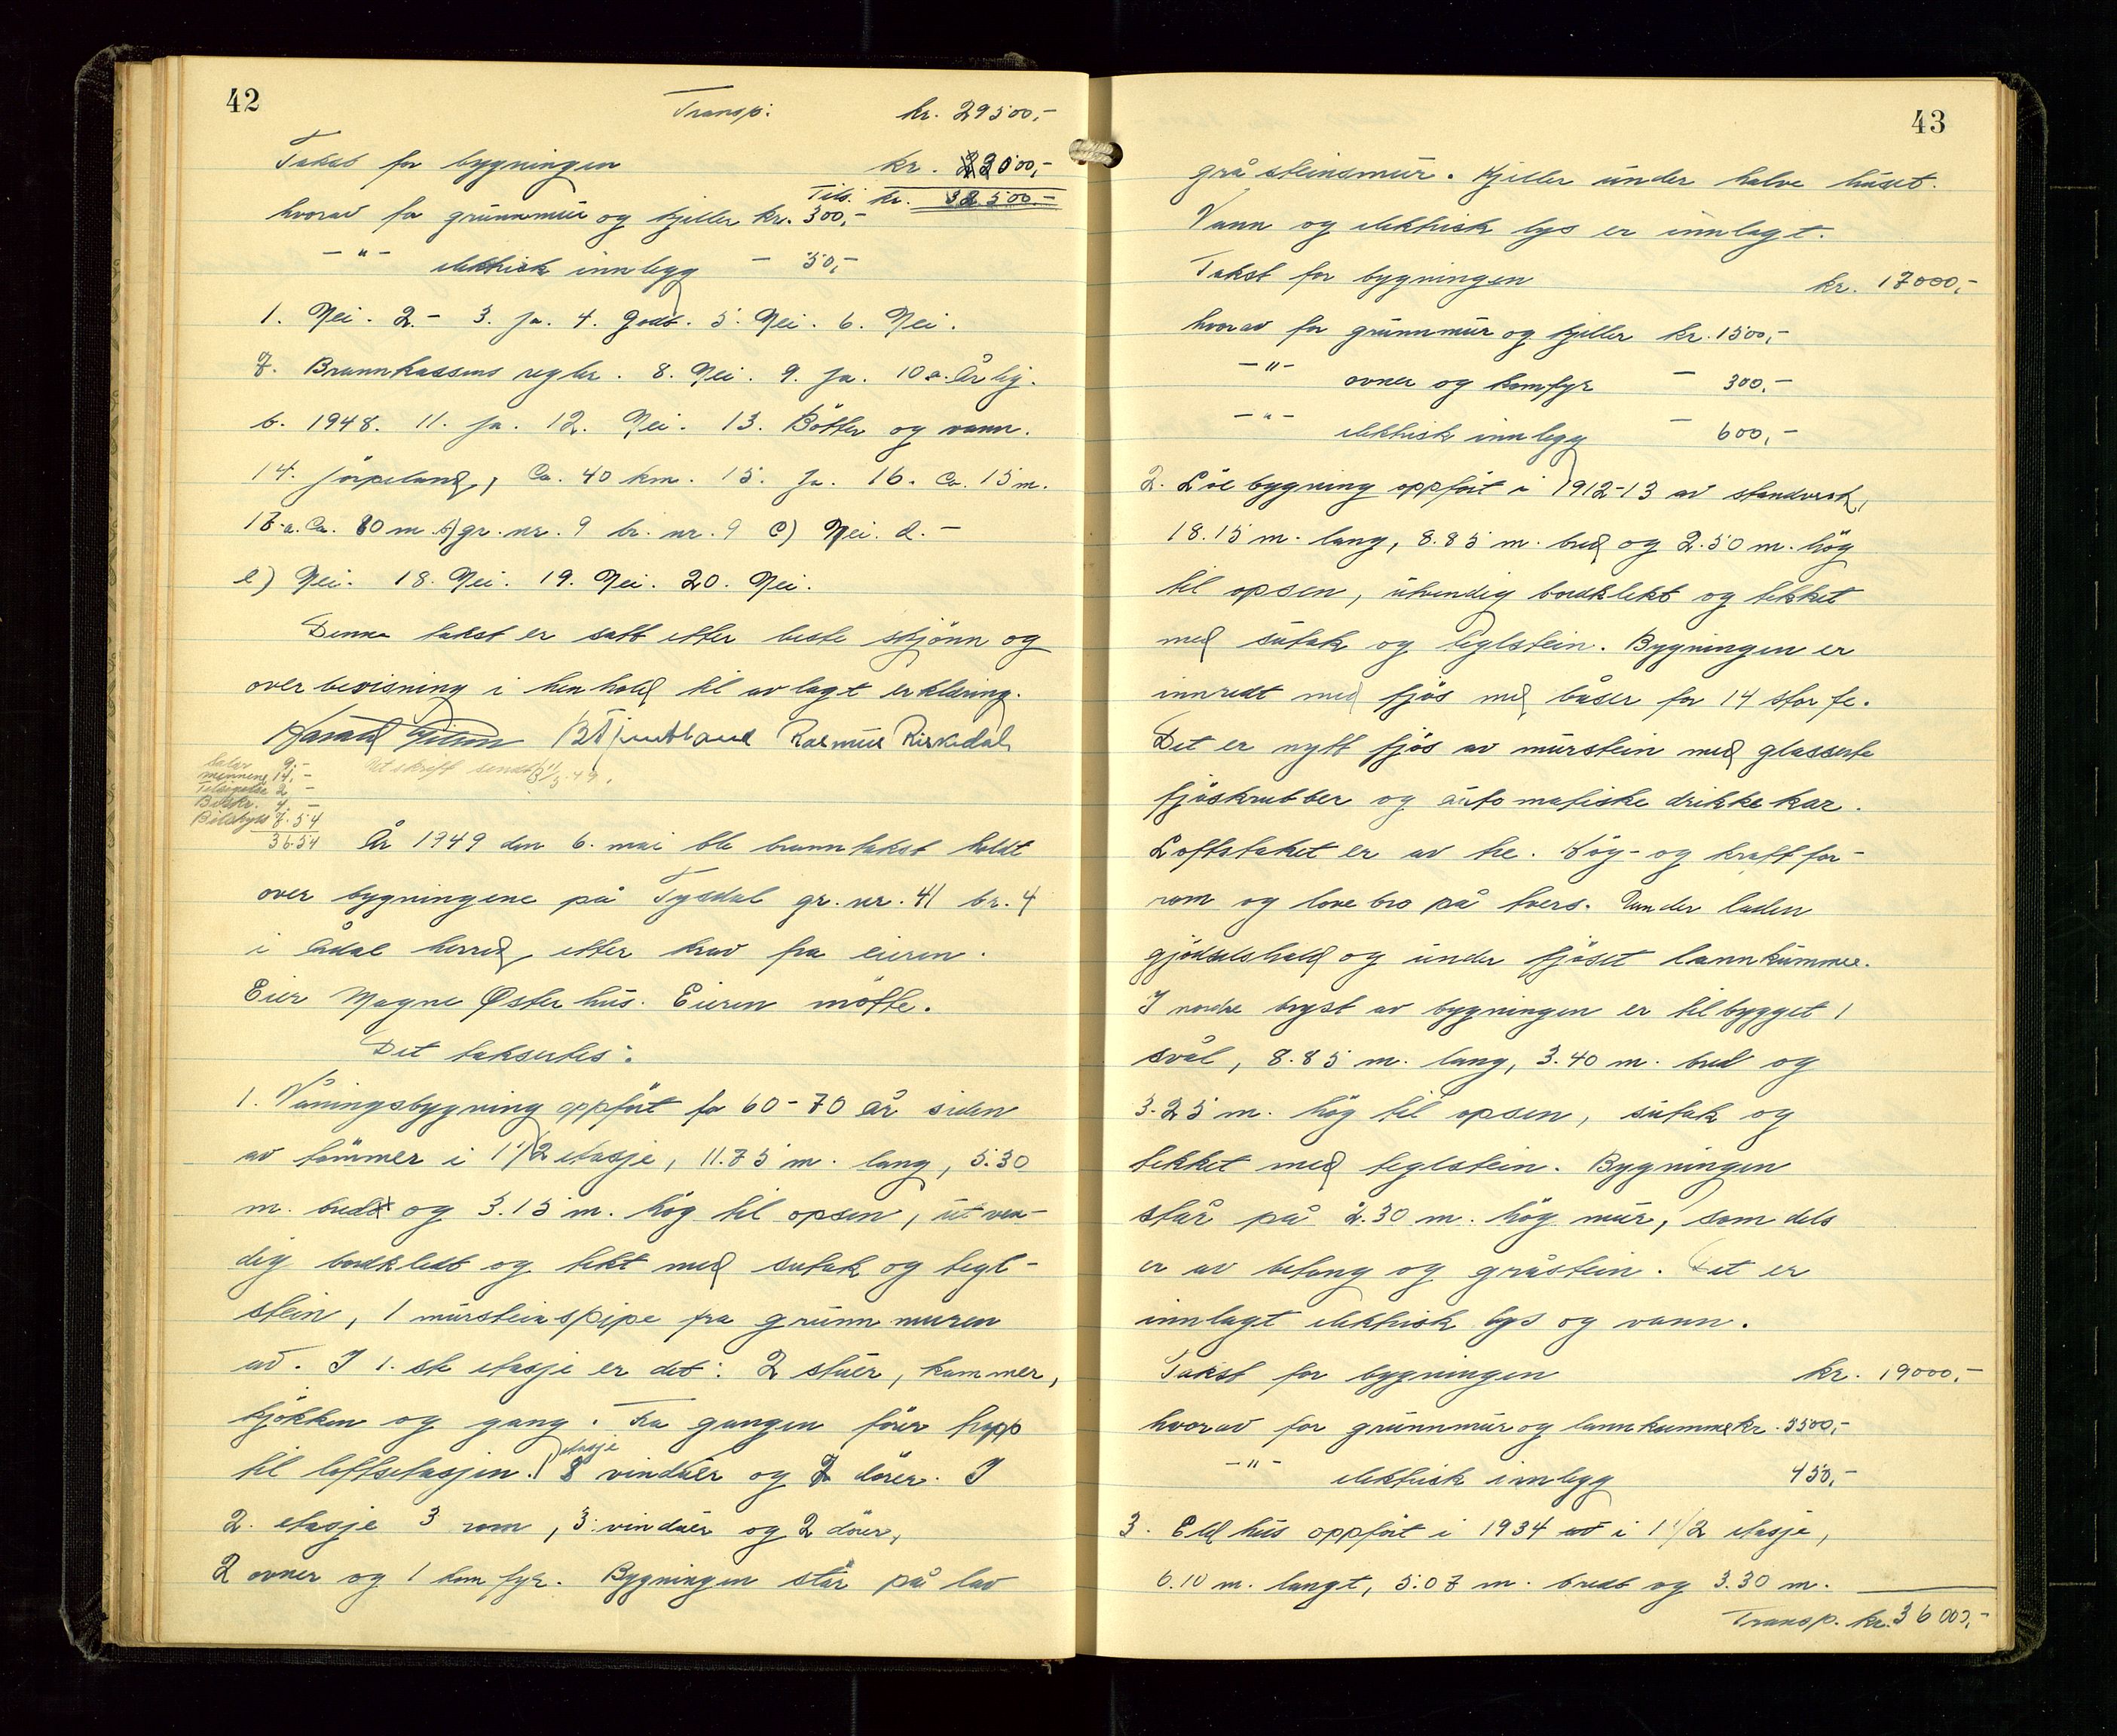 42
Transp: kr. 29500,-
Takst for bygningen kr. 3000,-
Tils. kr. 32500.-
hvorav for grunnmur og kjeller kr. 300,-
-"- elektrisk innlegg - 50,-
1. Nei. 2.- 3. Ja. 4. Godt. 5. Nei. 6. Nei.
7. Brannkassens regler. 8. Nei. 9. Ja. 10 a. Årlig.
b. 1948. 11. Ja. 12. Nei. 13. Bötter og vann.
14. Jörpeland, Ca. 40 km. 15. Ja. 16. Ca. 15 m.
17-a. Ca. 80 m. b) gr. nr. 9 br. nr. 9 c) Nei. d. -
e) Nei. 18. Nei. 19. Nei. 20. Nei.
Denne takst er satt etter beste skjönn og
overbevisning i henhold til avlagt erklæring.
Harald Rasmus Riskedal
Utskrift sendt 5.49.
9.-
14,-
Tilsigelse 2 -
Bilskr. 4. -
7.54
36.54 År 1949 den 6. mai ble branntakst holdt
over bygningene på Tysdal gr. nr. 41 br. 4
i Årdal herred, etter krav fra eieren.
Eier Magne Østerhus. Eieren mötte.
Det taksertes:
1. Våningsbygning oppfört for 60-70 år siden
av tömmer i 1 1/2 etasje, 11.75 m. lang, 5.30
m. bred og 3.15 m. hög til opsen, utven-
dig bordkledt og tekt med sutak og tegl-
stein, 1 mursteinspipe fra grunnmuren
av. I 1.ste etasje er det: 2 stuer, kammer,
kjökken og gang. Fra gangen förer trapp
til loftsetasjen. 1 etasje 8 vinduer og 7 dörer. I
2. etasje 3 rom, 3 vinduer og 2 dörer,
2 ovner og 1 komfyr. Bygningen står på lav
43
gråsteinsmur. Kjeller under halve huset.
Vann og elektrisk lys er innlagt.
Takst for bygningen kr. 17000,-
hvorav for grunnmur og kjeller kr. 1500,-
-"- ovner og komfyr - 300.-
-"- elektrisk innlegg - 600,-
2. Löebygning oppfört i 1912-13 av standverk,
18.15 m. lang, 8.85 m. bred og 2.50 m. hög
til opsen, utvendig bordkledt og tekket
med sutak og teglstein. Bygningen er
innredt med fjös med båser for 14 storfe.
Det er nytt fjös av murstein med glasserte
fjöskrubber og automatiske drikkekar.
Loftstaket er av tre. Höy- og kraftfor-
rom og lovebro på tvers. Under laden
gjödselshold og under fjöset lannkumme.
I nordre bryst av bygningen er tilbygget 1
svål, 8.85 m. lang, 3.40 m. bred og
3.25 m. hög til opsen, sutak og
tekket med teglstein. Bygningen
står på 2.30 m. hög mur, som dels
er av betong og gråstein. Det er
innlagt elektrisk lys og vann.
Takst for bygningen kr. 19000,-
hvorav for grunnmur og lannkumme kr. 3500,-
-"- elektrisk innlegg 450,-
3. Eldhus oppfört i 1934 av i 1 1/2 etasje,
6.10 m. langt, 5.07 m. bredt og 3.30 m.
Transp. kr. 36000,-